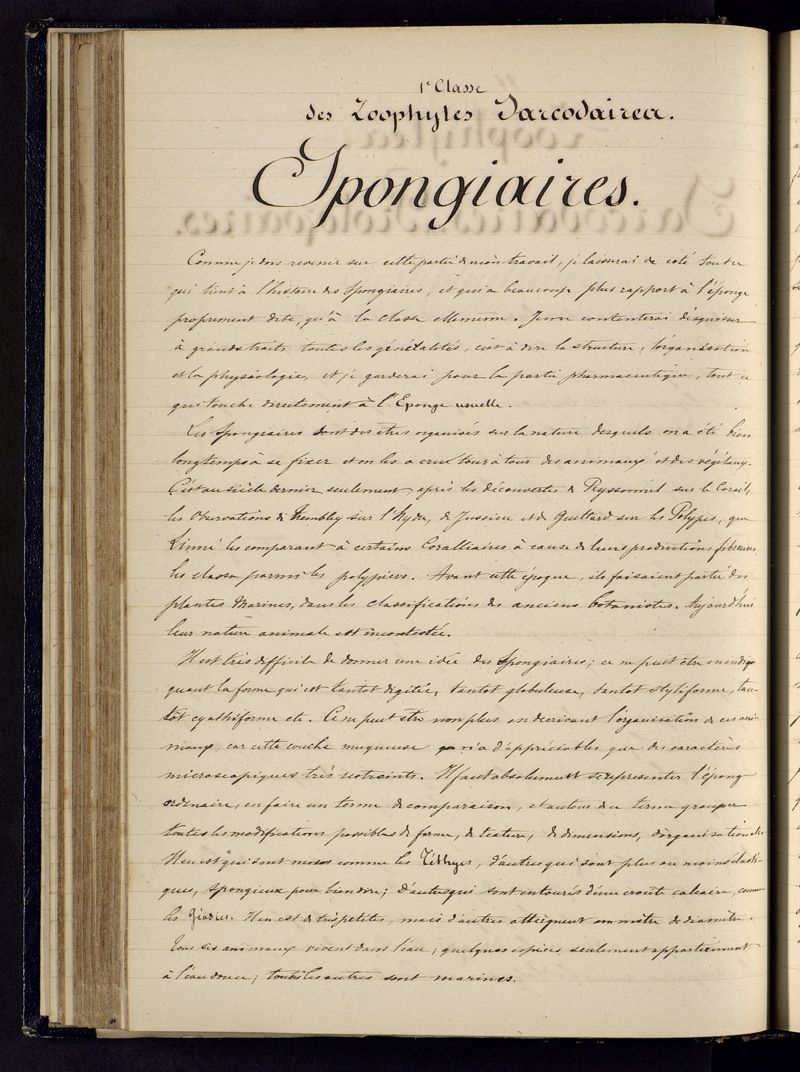 1e Classe
des Zoophytes Sarcodaires.
Spongiaires.
Comme je dois revenir sur cette partie de mon travail, je laisserai de coté tout ce
qui tient à l'histoire des Spongiaires, et qui a beaucoup plus rapport à l'éponge
proprement dite, qu'à la classe ellemême. Je me contenterai d'esquisser
à grands traits toutes les généralités, c'est à dire la structure, l'organisation
et la physiologie, et je garderai pour la partie pharmaceutique, tout ce
qui touche directement à l'Eponge usuelle.
Les Spongiaires sont des êtres organisés sur la nature desquels on a été bien
longtemps à se fixer et on les a crus tour à tour des animaux et des végétaux.
C'est au siècle dernier seulement, après les découvertes de Peyssonnel sur le Corail,
les Observations de Trembley sur l'hydre, de Jussieu et de Guettard sur les Polypes, que
Linné les comparant à certains Coralliaires à cause de leurs productions fibreuses,
les classa parmi les polypiers. Avant cette époque, ils faisaient partie des
plantes Marines, dans les classifications des anciens botanistes. Aujourd'hui
leur nature animale est incontestée.
Il est très difficile de donner une idée des Spongiaires; ce ne peut etre en indi
quant la forme qui est tantot digitée, tantot globuleuse, tantot styliforme, tan-
tôt cyathiforme etc. Ce ne peut etre non plus en decrivant l'organisation de ces ani
maux, car cette couche muqueuse n'a d'appréciables que des caractères
microscopiques très restreints. Il faut absolument se representer l'éponge
ordinaire, en faire un terme de comparaison, et autour de ce terme grouper
toutes les modifications possibles de forme, de texture, de dimensions, d'organisation etc
Il en est qui sont comme les Téthyes, d'autres qui sont plus ou moins élasti-
ques, spongieux pour bien dire; D'autres qui sont entourés d'une croute calcaire, comme
les Géodies. Il en est de très petites, mais d'autres atteignent un mètre de diamètre.
Tous ces animaux vivent dans l'eau; quelques espèces seulement appartiennent
à l'eau douce; toutes les autres sont marines.